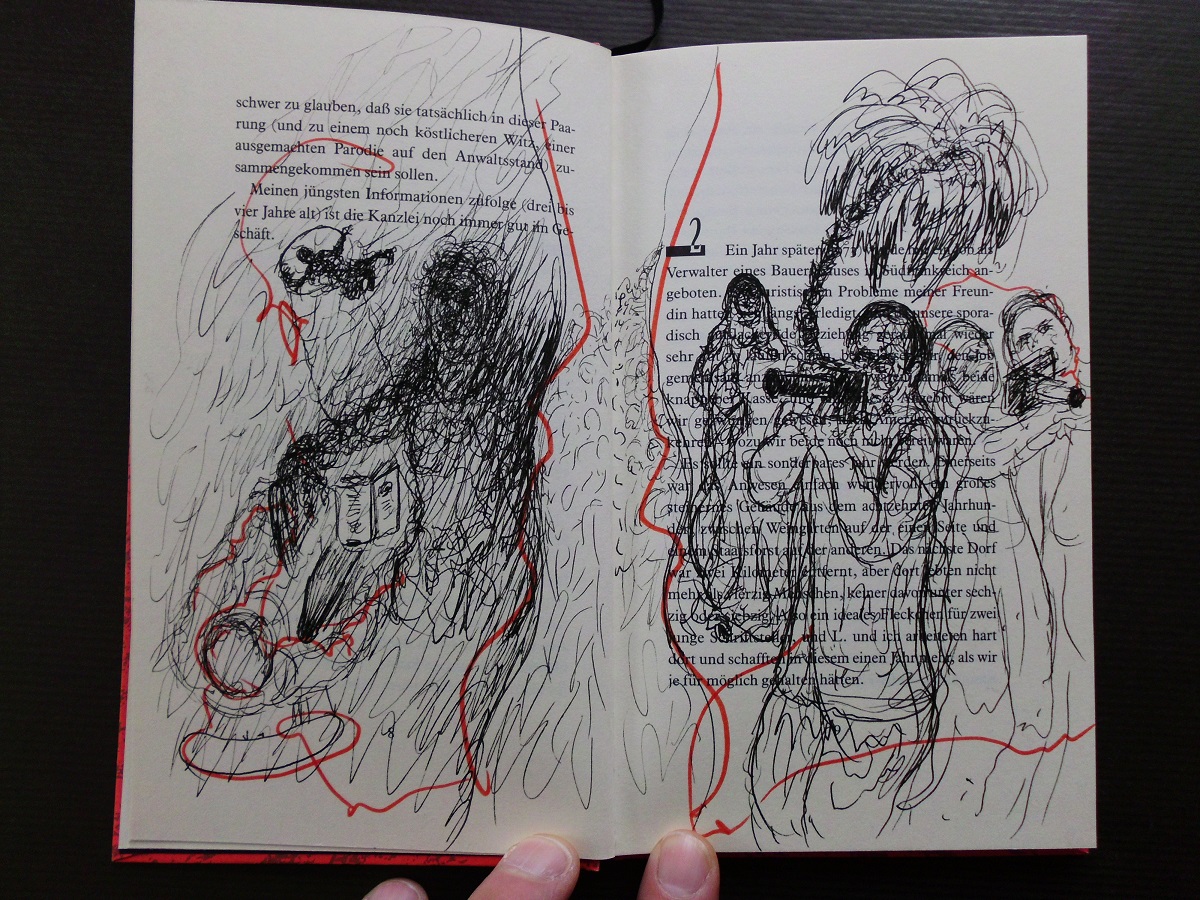 schwer zu glauben, daß sie tatsächlich in dieser Paa-
rung (und zu einem noch köstlicheren Witz, einer
ausgemachten Parodie auf den Anwaltsstand) zu-
sammengekommen sein sollen.
Meinen jüngsten Informationen zufolge (drei bis
vier Jahre alt) ist die Kanzlei noch immer gut im Ge-
schäft.
2
Ein Jahr später als
Verwalter eines Bauernhauses in Südfrankreich an-
geboten. juristischen Probleme meiner Freun-
din hatten längst erledigt, unsere spora-
disch Beziehung wieder
sehr
beide
knapp bei Kasse, Angebot waren
wir gezwungen gewesen, nach Amerika zurückzu-
kehren – wozu wir beide noch nicht bereit waren.
Es sollte ein sonderbares Jahr werden. Einerseits
war das Anwesen einfach wundervoll, ein großes
steinernes Gebäude aus dem achtzehnten Jahrhun-
dert, zwischen Weingärten auf der einen Seite und
einem Staatsforst auf der anderen. Das nächste Dorf
war zwei Kilometer entfernt, aber dort lebten nicht
mehr als vierzig Menschen, keiner davon unter sech-
zig oder siebzig. Also ein ideales Fleckchen für zwei
junge Schriftsteller, und L. und ich arbeiteten hart
dort und schafften in diesem einen Jahr mehr, als wir
je für möglich gehalten hätten.